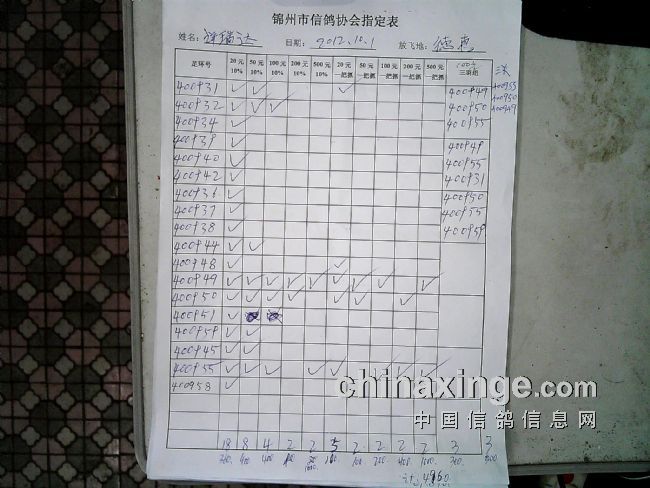 锦州市信鸽协会指定表
姓名: 日期: 2012.10.1 放飞地: 德惠
足环号 20元10% 50元10% 100元10% 200元10% 500元10% 20元一把抓 50元一把抓 100元一把抓 200元一把抓 500元一把抓 100元三联组
400931 ✓ ✓ ✓ 400949 400955
400932 ✓ ✓ ✓ 400950 400950
400934 ✓ 400955 400949
400939 ✓ 400949
400940 ✓ 400955
400942 ✓ 400931
400936 ✓ 400950
400937 ✓ 400955
400938 ✓ 400959
400944 ✓ ✓
400948 ✓ ✓
400949 ✓ ✓ ✓ ✓ ✓ ✓ ✓ ✓ ✓
400950 ✓ ✓ ✓ ✓ ✓ ✓ ✓
400951 ✓
400959 ✓ ✓
400945 ✓ ✓
400955 ✓ ✓ ✓ ✓ ✓ ✓ ✓ ✓
400958 ✓
chinaxinge.com
中国信鸽信息网
18 8 4 2 2 5 2 2 2 2 3 3